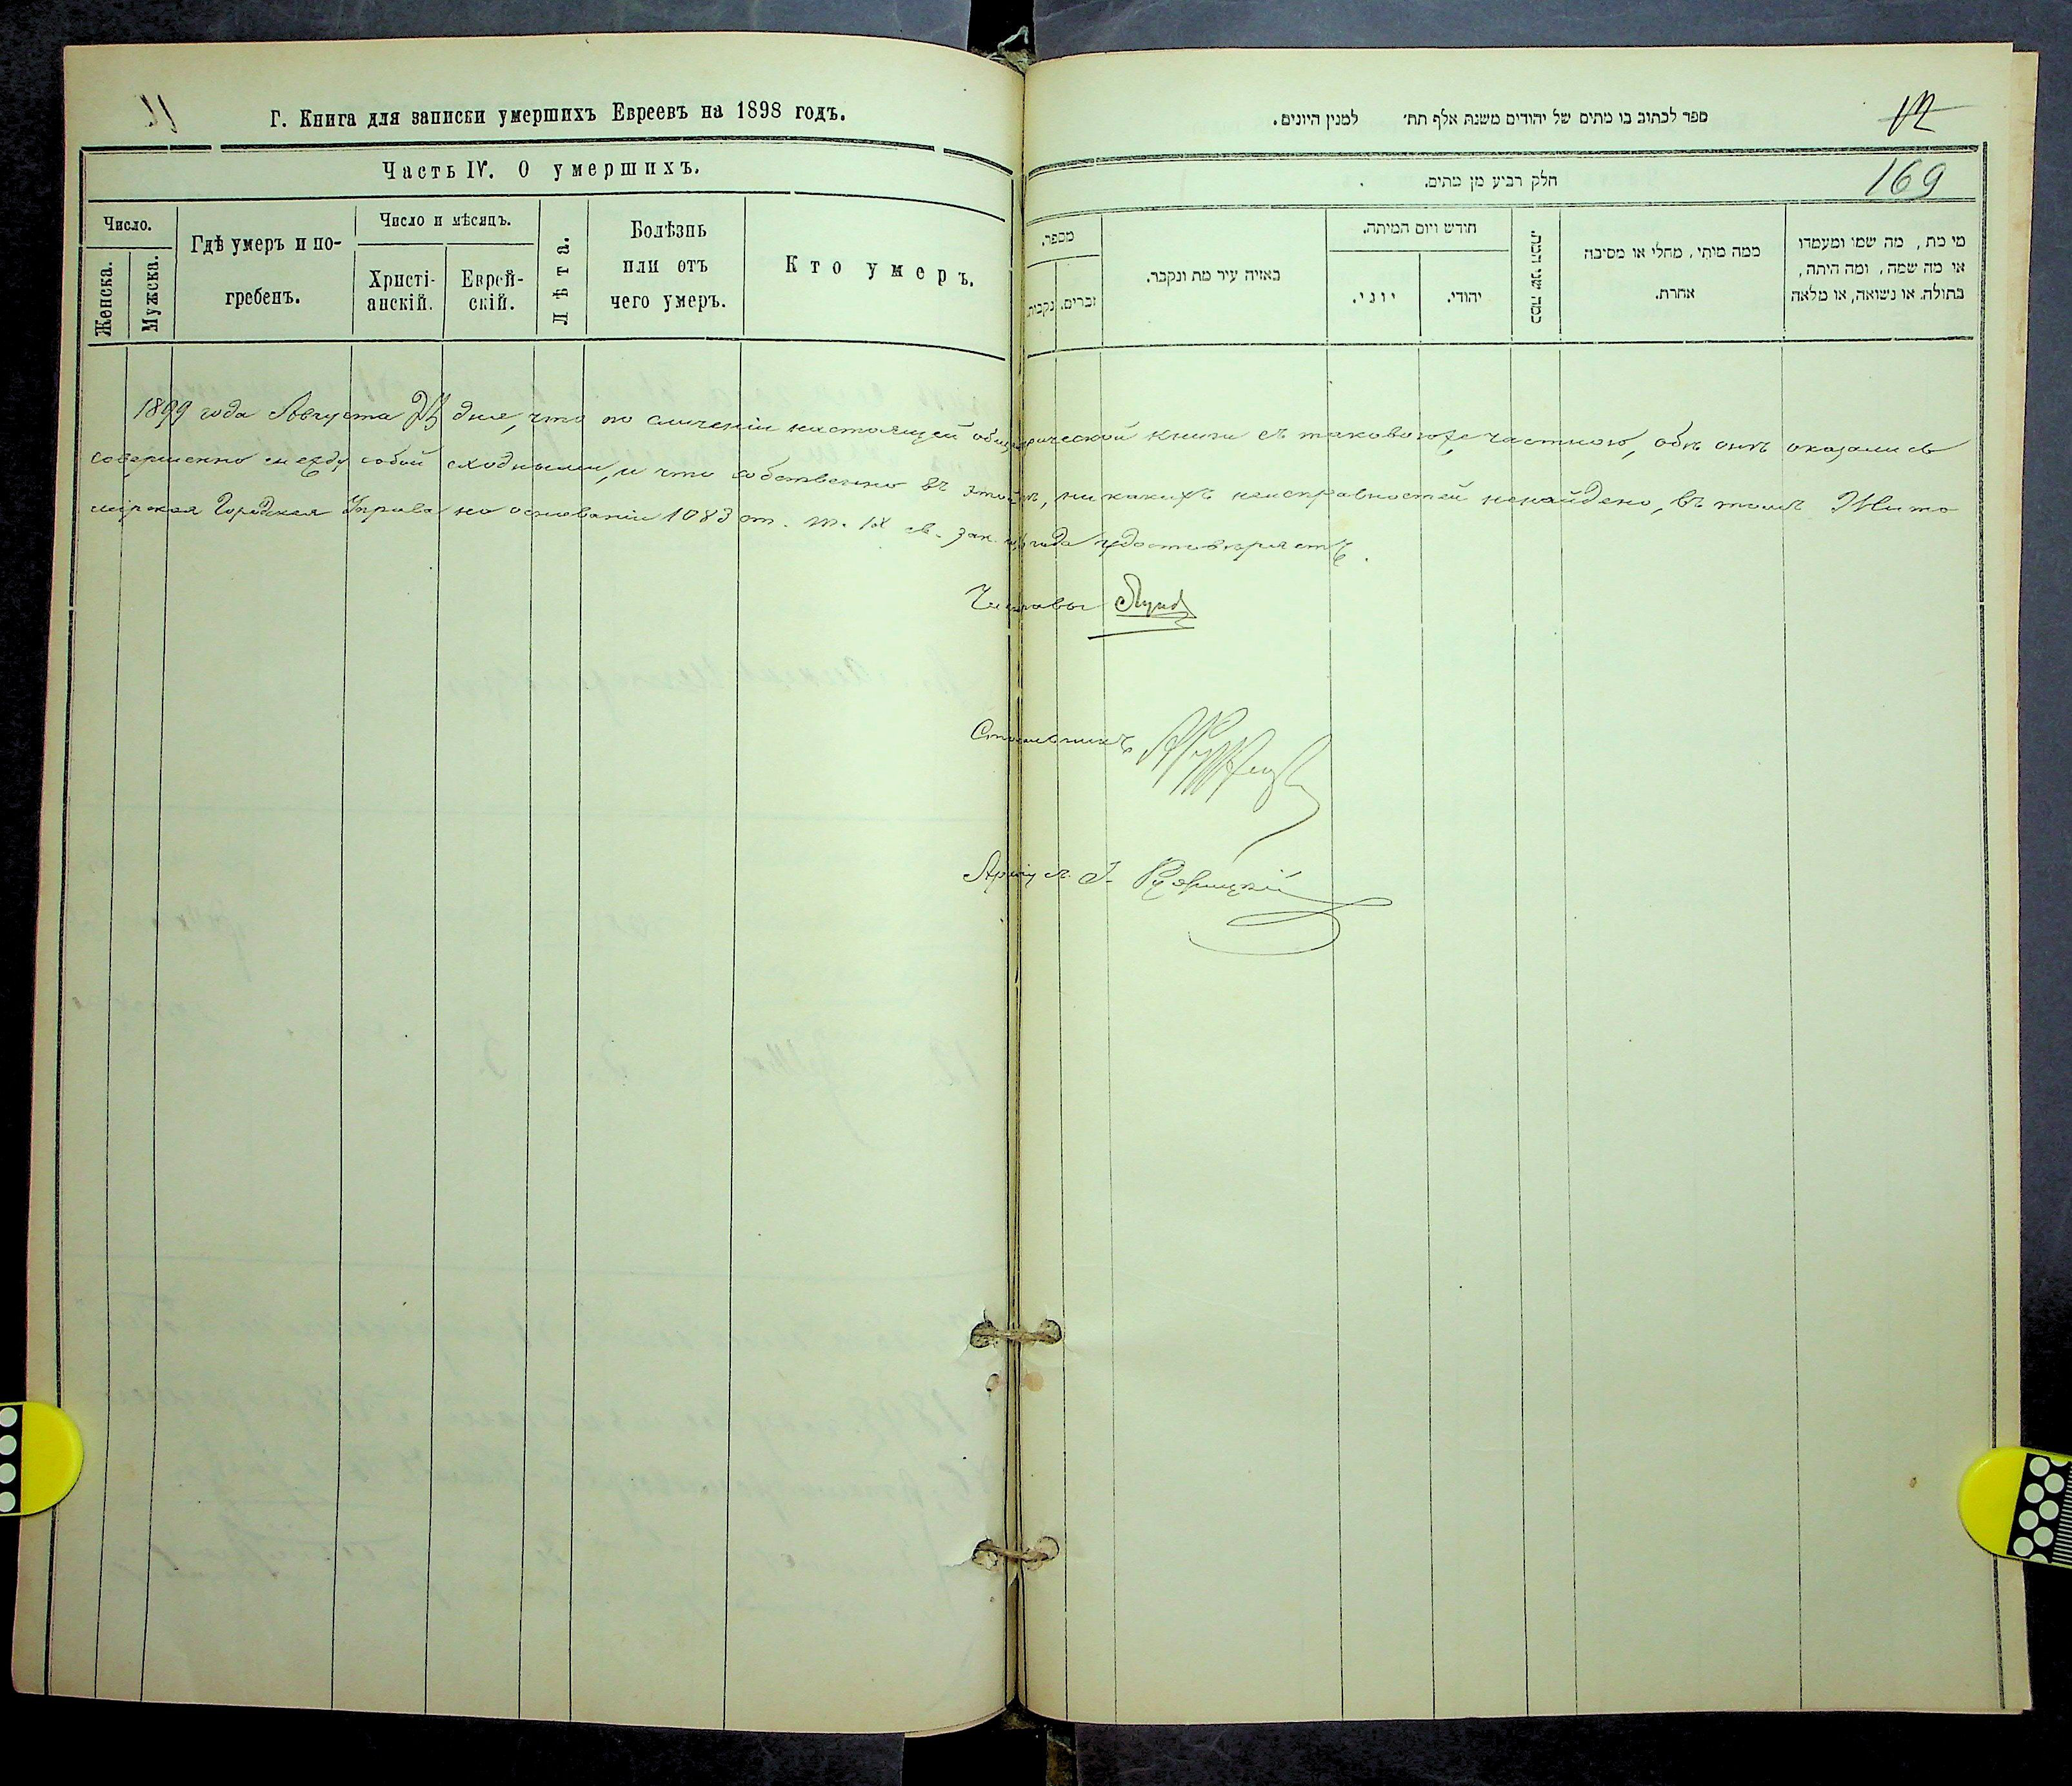 Г. Книга для записки умершихъ Евреевъ на 1898 годъ.
Часть IV. О умершихъ.
Число.
Женска.
Мужска.
Гдѣ умеръ и по-
гребенъ.
Число и мѣсяцъ.
Христі-
анскій.
Еврей-
скій.
Лѣта.
Болѣзнь
или отъ
чего умеръ.
Кто умеръ.
ספר לכתוב בו מתים של יהודים משנת אלף תת׳ למנין היונים.
169
חלק רביע מן מתים.
מספר.
נקבות.
זכרים.
באיזה עיר מת ונקבר.
חודש ויום המיתה.
יוני.
יהודי.
כמה שני המת.
ממה מיתי, מחלי או מסיבה
אחרת.
מי מת, מה שמו ומעמדו
או מה שמה, ומה היתה,
בתולה. או נשואה, או מלאה
1899 года Августа дня, что по сличеніи настоящей книги съ таковою же частною, обѣ онѣ оказались
совершенно между собой сходными, и что собственно въ этой, никакихъ неисправностей ненайдено, въ томъ Жито
мірская Городская Управа на основаніи 1083 ст. т. IX св. зак. года удостовѣряетъ.
Члн Управы
Столоначальникъ